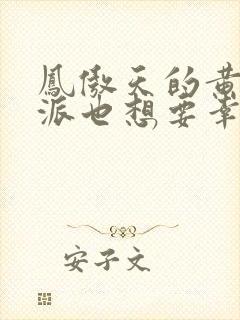 鳳傲天的黃
派也想要幸
安子文